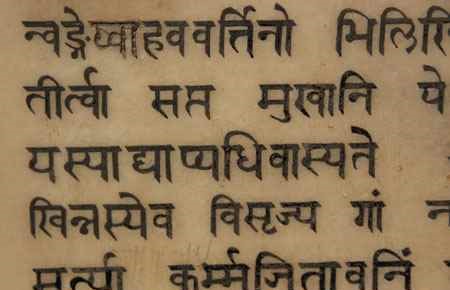 न्वङ्गेष्वाहववर्त्तिनो भिलिखि
तीर्त्वा सप्त मुखानि ये
यस्याद्याप्यधिवास्यते
खिन्नस्येव विसृज्य गां न
मूर्त्या कर्म्मजितावनिं